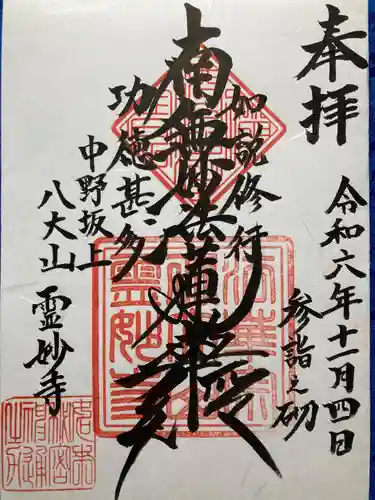 奉拝
令和六年十一月四日
参詣之砌
如説修行
南無妙法蓮華経
功徳甚多
中野坂上
八大山
霊妙寺